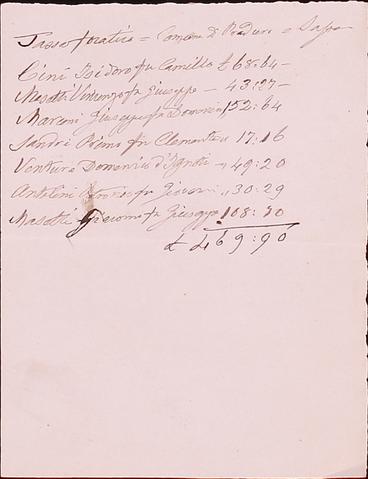 Tassa focatico = Comune di Praduro e Sasso
Cini Isidoro fu Camillo £ 68:64-
Masotti Vincenzo fu Giuseppe - 43:27-
Marconi Giuseppe fu Domenico 152:64
Sandri Primo fu Clemente " 17:16
Ventura Domenico d'Ignoti - " 49:20
Antolini fu Giovanni " 30:29
Masotti Giacomo fu Giuseppe 108:70
£ 469:90